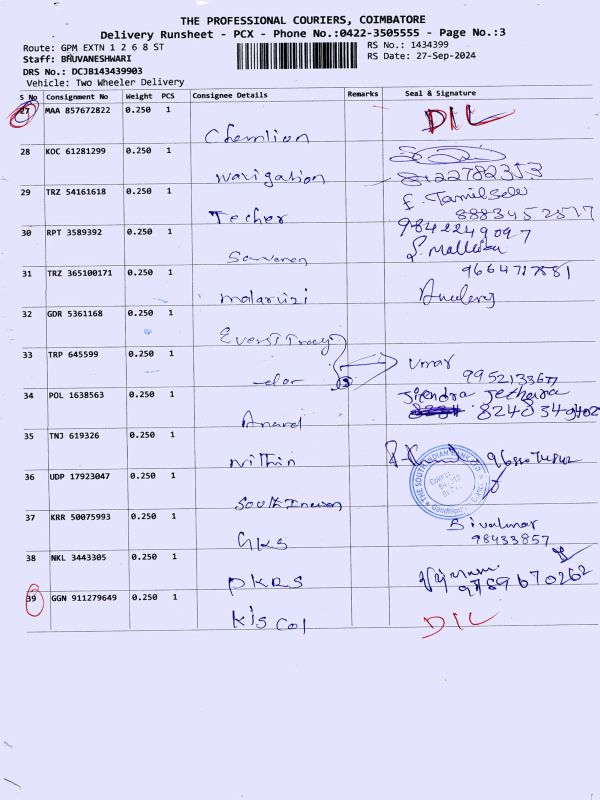 THE PROFESSIONAL COURIERS, COIMBATORE
Delivery Runsheet - PCX - Phone No.:0422-3505555 - Page No.:3
Route: GPM EXTN 1 2 6 8 ST
RS No.: 1434399
Staff: BHUVANESHWARI
RS Date: 27-Sep-2024
DRS No.: DCJB143439903
Vehicle: Two Wheeler Delivery
S No Consignment No Weight PCS Consignee Details Remarks Seal & Signature
27 MAA 857672822 0.250 1 DIL
Chemlion
28 KOC 61281299 0.250 1
Navigation 8122782353
29 TRZ 54161618 0.250 1 E. Tamilsel
Techer 8883452517
30 RPT 3589392 0.250 1 9842249097
Saravanan S. Mallika
31 TRZ 365100171 0.250 1 9664717581
malarvizi
32 GDR 5361168 0.250 1
33 TRP 645599 0.250 1 Umar
34 POL 1638563 0.250 1 Jitendra Jethara
Anand
35 TNJ 619326 0.250 1
Nithin
THE SOUTH INDIAN BANK LTD.
36 UDP 17923047 0.250 1
South Indian
37 KRR 50075993 0.250 1 Sivakumar
GKS 98433857
38 NKL 3443305 0.250 1
PKRS 9789670262
39 GGN 911279649 0.250 1
K's Col DIL